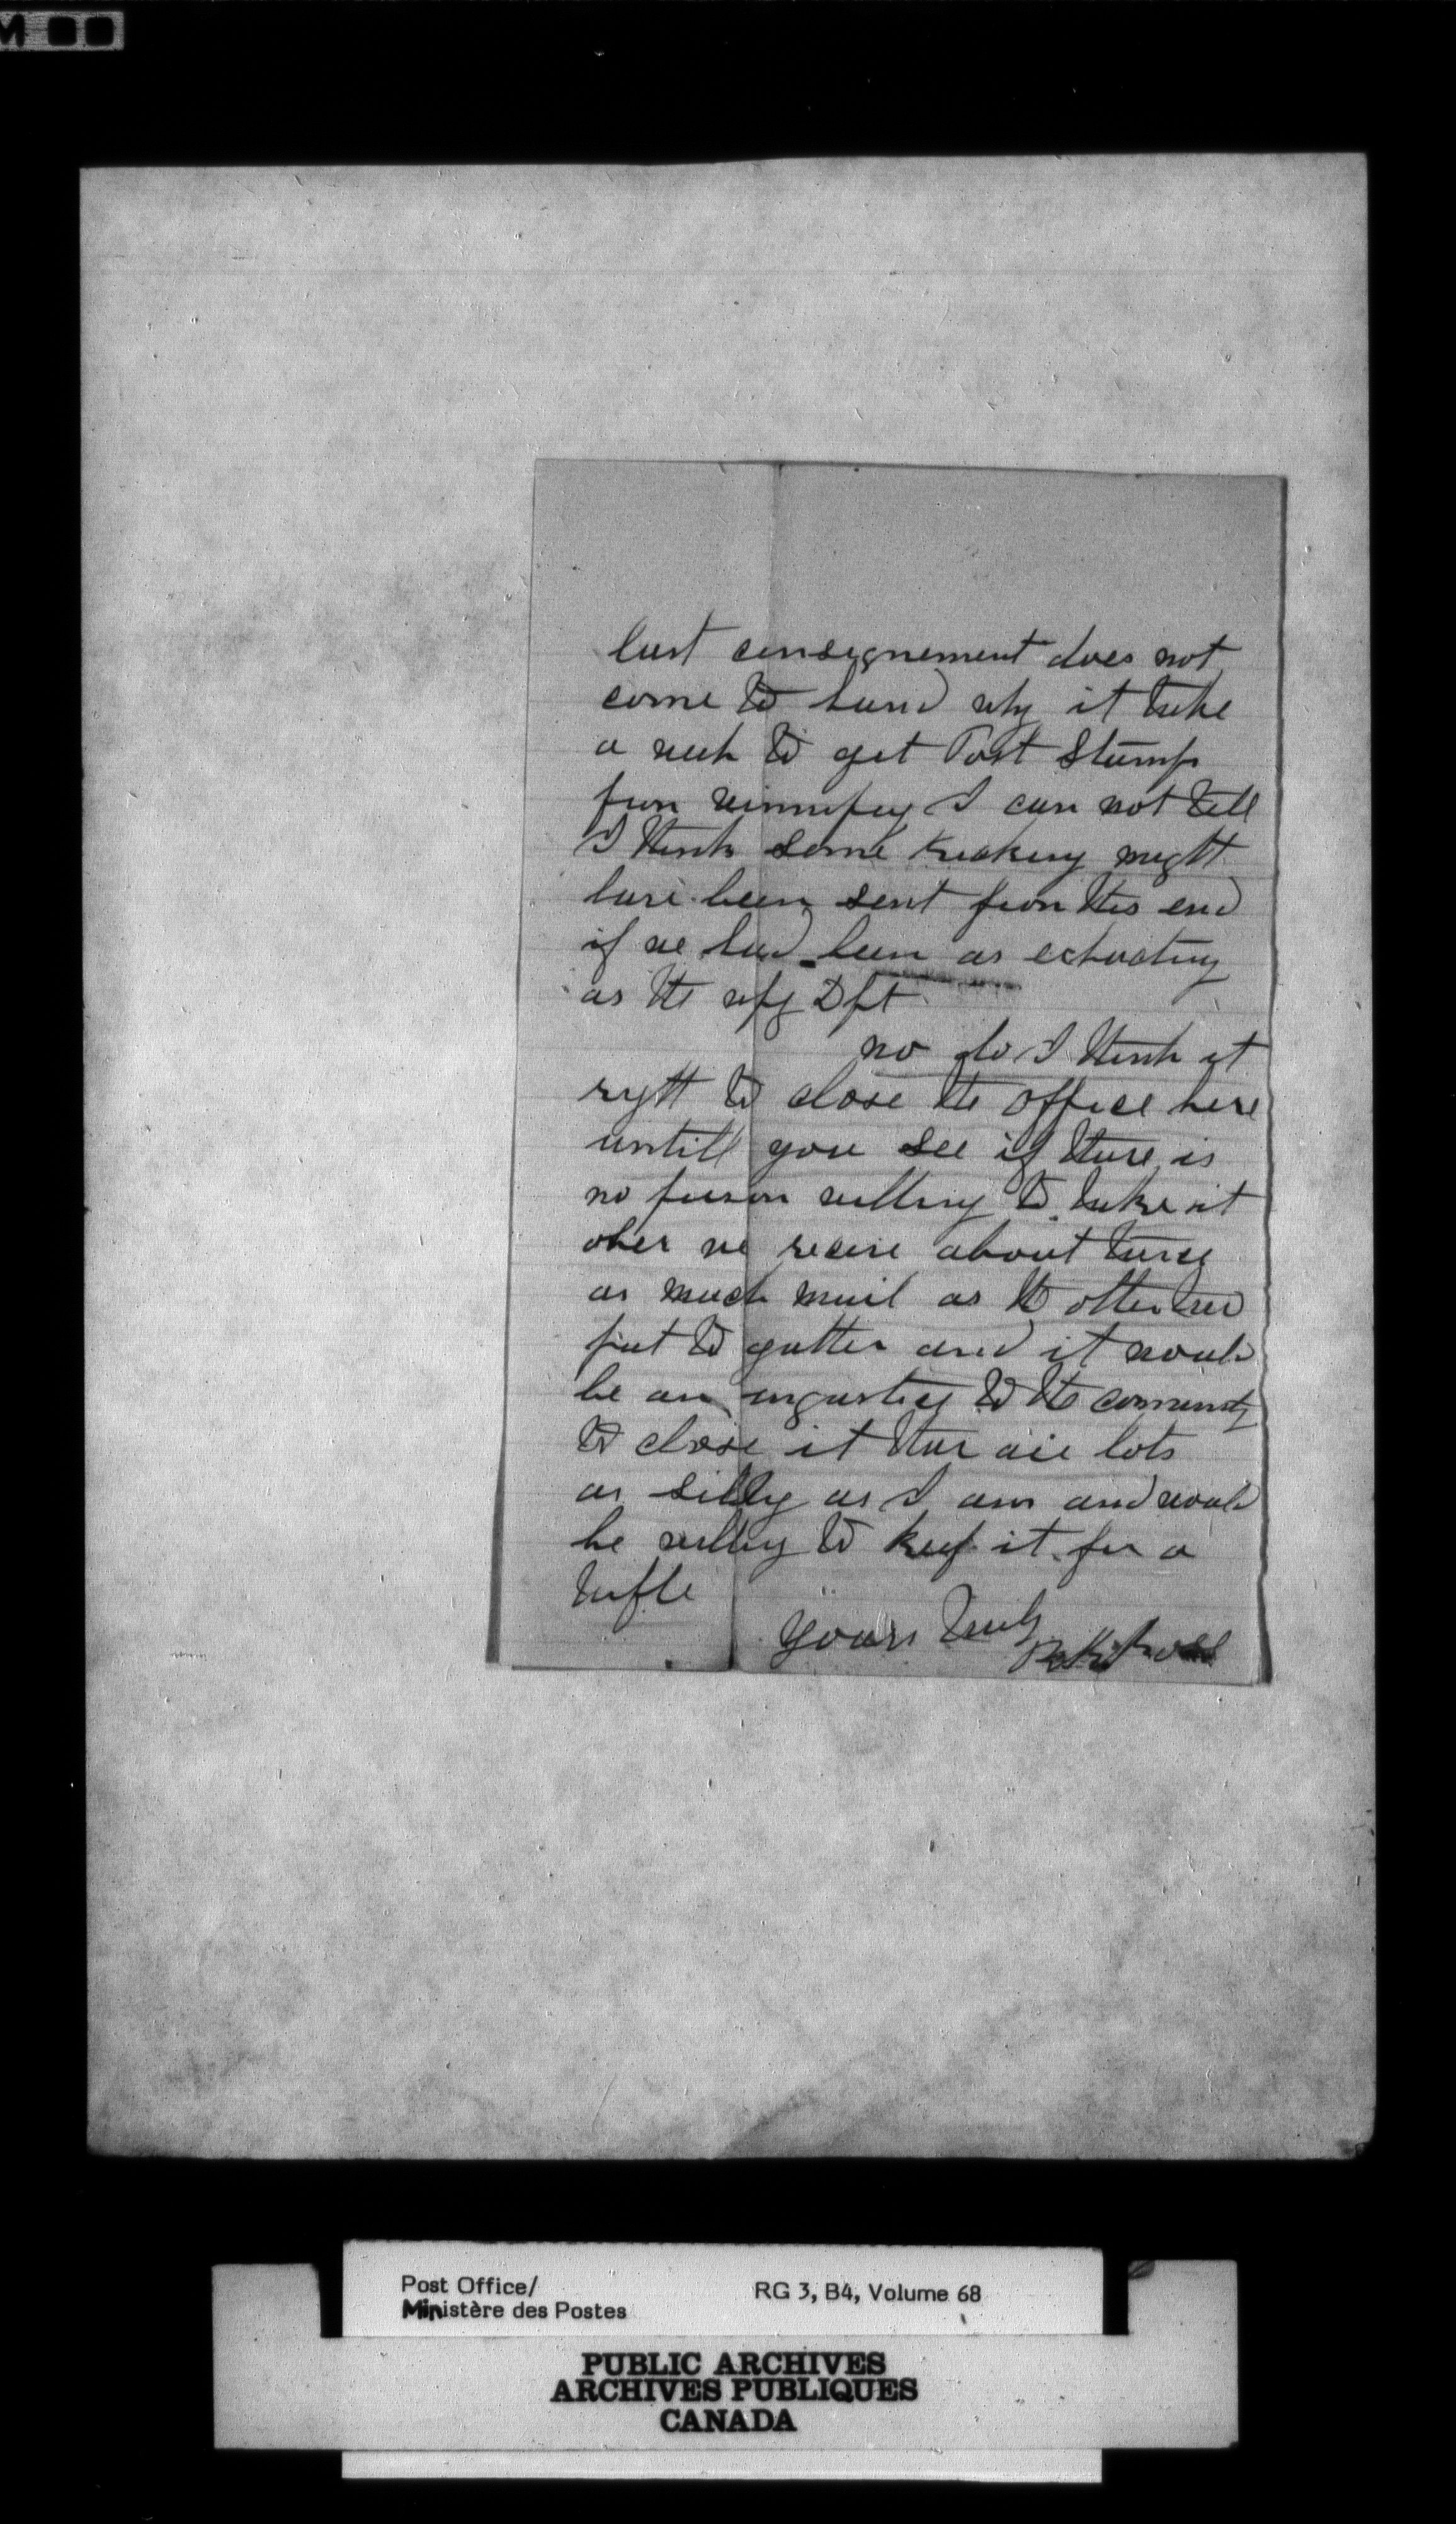 M
last consignement does not
come to hand why it take
a week to get Post Stamps
from winnipeg I can not tell
I think some might
have been sent from this end
if we had been as
as the wpg Dpt
no do I think it
rigtt to close the office here
untill you see if there is
no person willing to take it
over we receive about twice
as much mail as the other two
put to gatter and it would
be an to the community
to close it thar are lots
as silly as I am and would
be willing to keep it for a
trifle
Yours truly
Post Office/
Ministère des Postes
RG 3, B4, Volume 68
PUBLIC ARCHIVES
ARCHIVES PUBLIQUES
CANADA